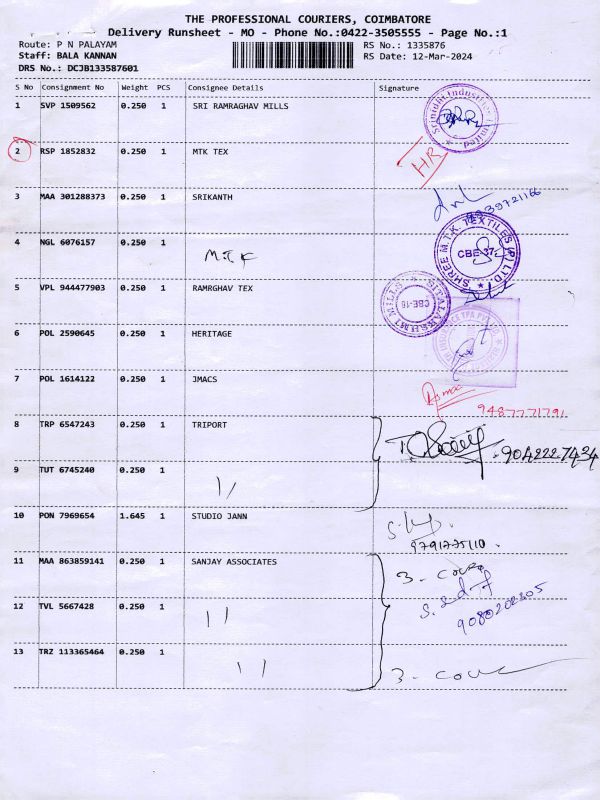 THE PROFESSIONAL COURIERS, COIMBATORE
Delivery Runsheet - MO - Phone No.:0422-3505555 - Page No.:1
Route: P N PALAYAM
RS No.: 1335876
Staff: BALA KANNAN
RS Date: 12-Mar-2024
DRS No.: DCJB133587601
S No Consignment No Weight PCS Consignee Details Signature
1 SVP 1509562 0.250 1 SRI RAMRAGHAV MILLS
Srinidhi Industries Limited
2 RSP 1852832 0.250 1 MTK TEX
HR
3 MAA 301288373 0.250 1 SRIKANTH
4 NGL 6076157 0.250 1
M.T.K
SHREE M.T.K. TEXTILES (P) LTD.
CBE-37
5 VPL 944477903 0.250 1 RAMRGHAV TEX
SITALAKSHMI MILLS
CBE-16
6 POL 2590645 0.250 1 HERITAGE
7 POL 1614122 0.250 1 JMACS
9487771791
8 TRP 6547243 0.250 1 TRIPORT
9042227434
9 TUT 6745240 0.250 1
10 PON 7969654 1.645 1 STUDIO JANN
9791775110
11 MAA 863859141 0.250 1 SANJAY ASSOCIATES
3 - cover
12 TVL 5667428 0.250 1
9080202305
13 TRZ 113365464 0.250 1
3 - cover